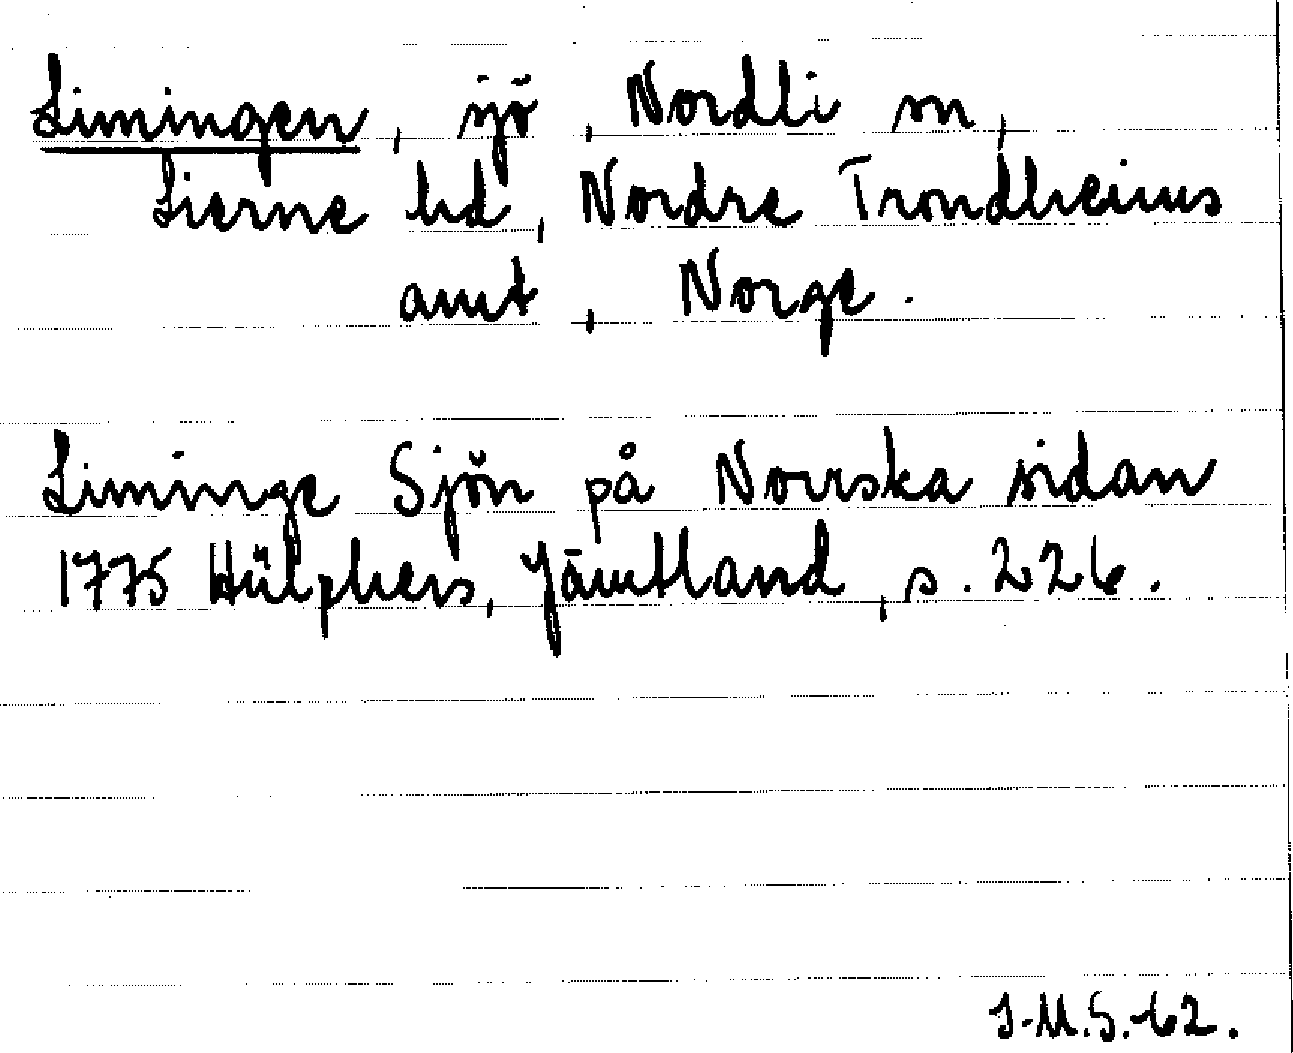 Limingen, sjö, Nordli sn,
Lierne hd, Nordre Trondheims
amt, Norge.
Liminge Sjön på Norrska sidan
1775 Hülphers, Jämtland, s. 226.
I-M.S.-62.